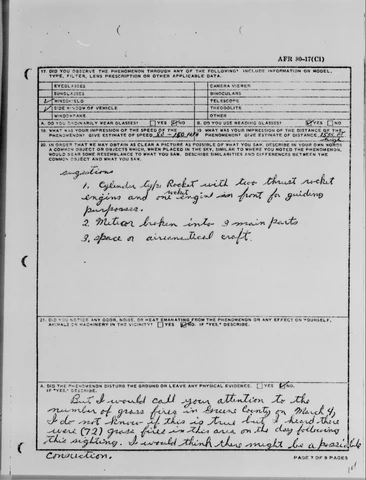 AFR 80-17(C1)
17. DID YOU OBSERVE THE PHENOMENON THROUGH ANY OF THE FOLLOWING? INCLUDE INFORMATION ON MODEL,
TYPE, FILTER, LENS PRESCRIPTION OR OTHER APPLICABLE DATA.
EYEGLASSES CAMERA VIEWER
SUNGLASSES BINOCULARS
WINDSHIELD TELESCOPE
SIDE WINDOW OF VEHICLE THEODOLITE
WINDOWPANE OTHER
A. DO YOU ORDINARILY WEAR GLASSES? YES NO B. DO YOU USE READING GLASSES? YES NO
18. WHAT WAS YOUR IMPRESSION OF THE SPEED OF THE 19. WHAT WAS YOUR IMPRESSION OF THE DISTANCE OF THE
PHENOMENON? GIVE ESTIMATE OF SPEED PHENOMENON? GIVE ESTIMATE OF DISTANCE
20. IN ORDER THAT WE MAY OBTAIN AS CLEAR A PICTURE AS POSSIBLE OF WHAT YOU SAW, DESCRIBE IN YOUR OWN WORDS
A COMMON OBJECT OR OBJECTS WHICH, WHEN PLACED IN THE SKY, SIMILAR TO WHERE YOU NOTED THE PHENOMENON,
WOULD BEAR SOME RESEMBLANCE TO WHAT YOU SAW. DESCRIBE SIMILARITIES AND DIFFERENCES BETWEEN THE
COMMON OBJECT AND WHAT YOU SAW.
sugestions
1. Cylinder type Rocket with two thrust rocket
rocket
engins and one engin in front for guiding
purposses.
2. Meteor broken into 3 main parts
3. space or aironmetical craft.
21. DID YOU NOTICE ANY ODOR, NOISE, OR HEAT EMANATING FROM THE PHENOMENON OR ANY EFFECT ON YOURSELF,
ANIMALS OR MACHINERY IN THE VICINITY? YES NO. IF "YES," DESCRIBE.
A. DID THE PHENOMENON DISTURB THE GROUND OR LEAVE ANY PHYSICAL EVIDENCE. YES NO.
IF "YES," DESCRIBE.
But I would call your attention to the
number of grass fires in Greene County on March 4,
I do not know if this is true but I heard there
were (72) grass fires in this area on the day following
this sighting. I would think there might be a possible
Conniction.
PAGE 7 OF 9 PAGES